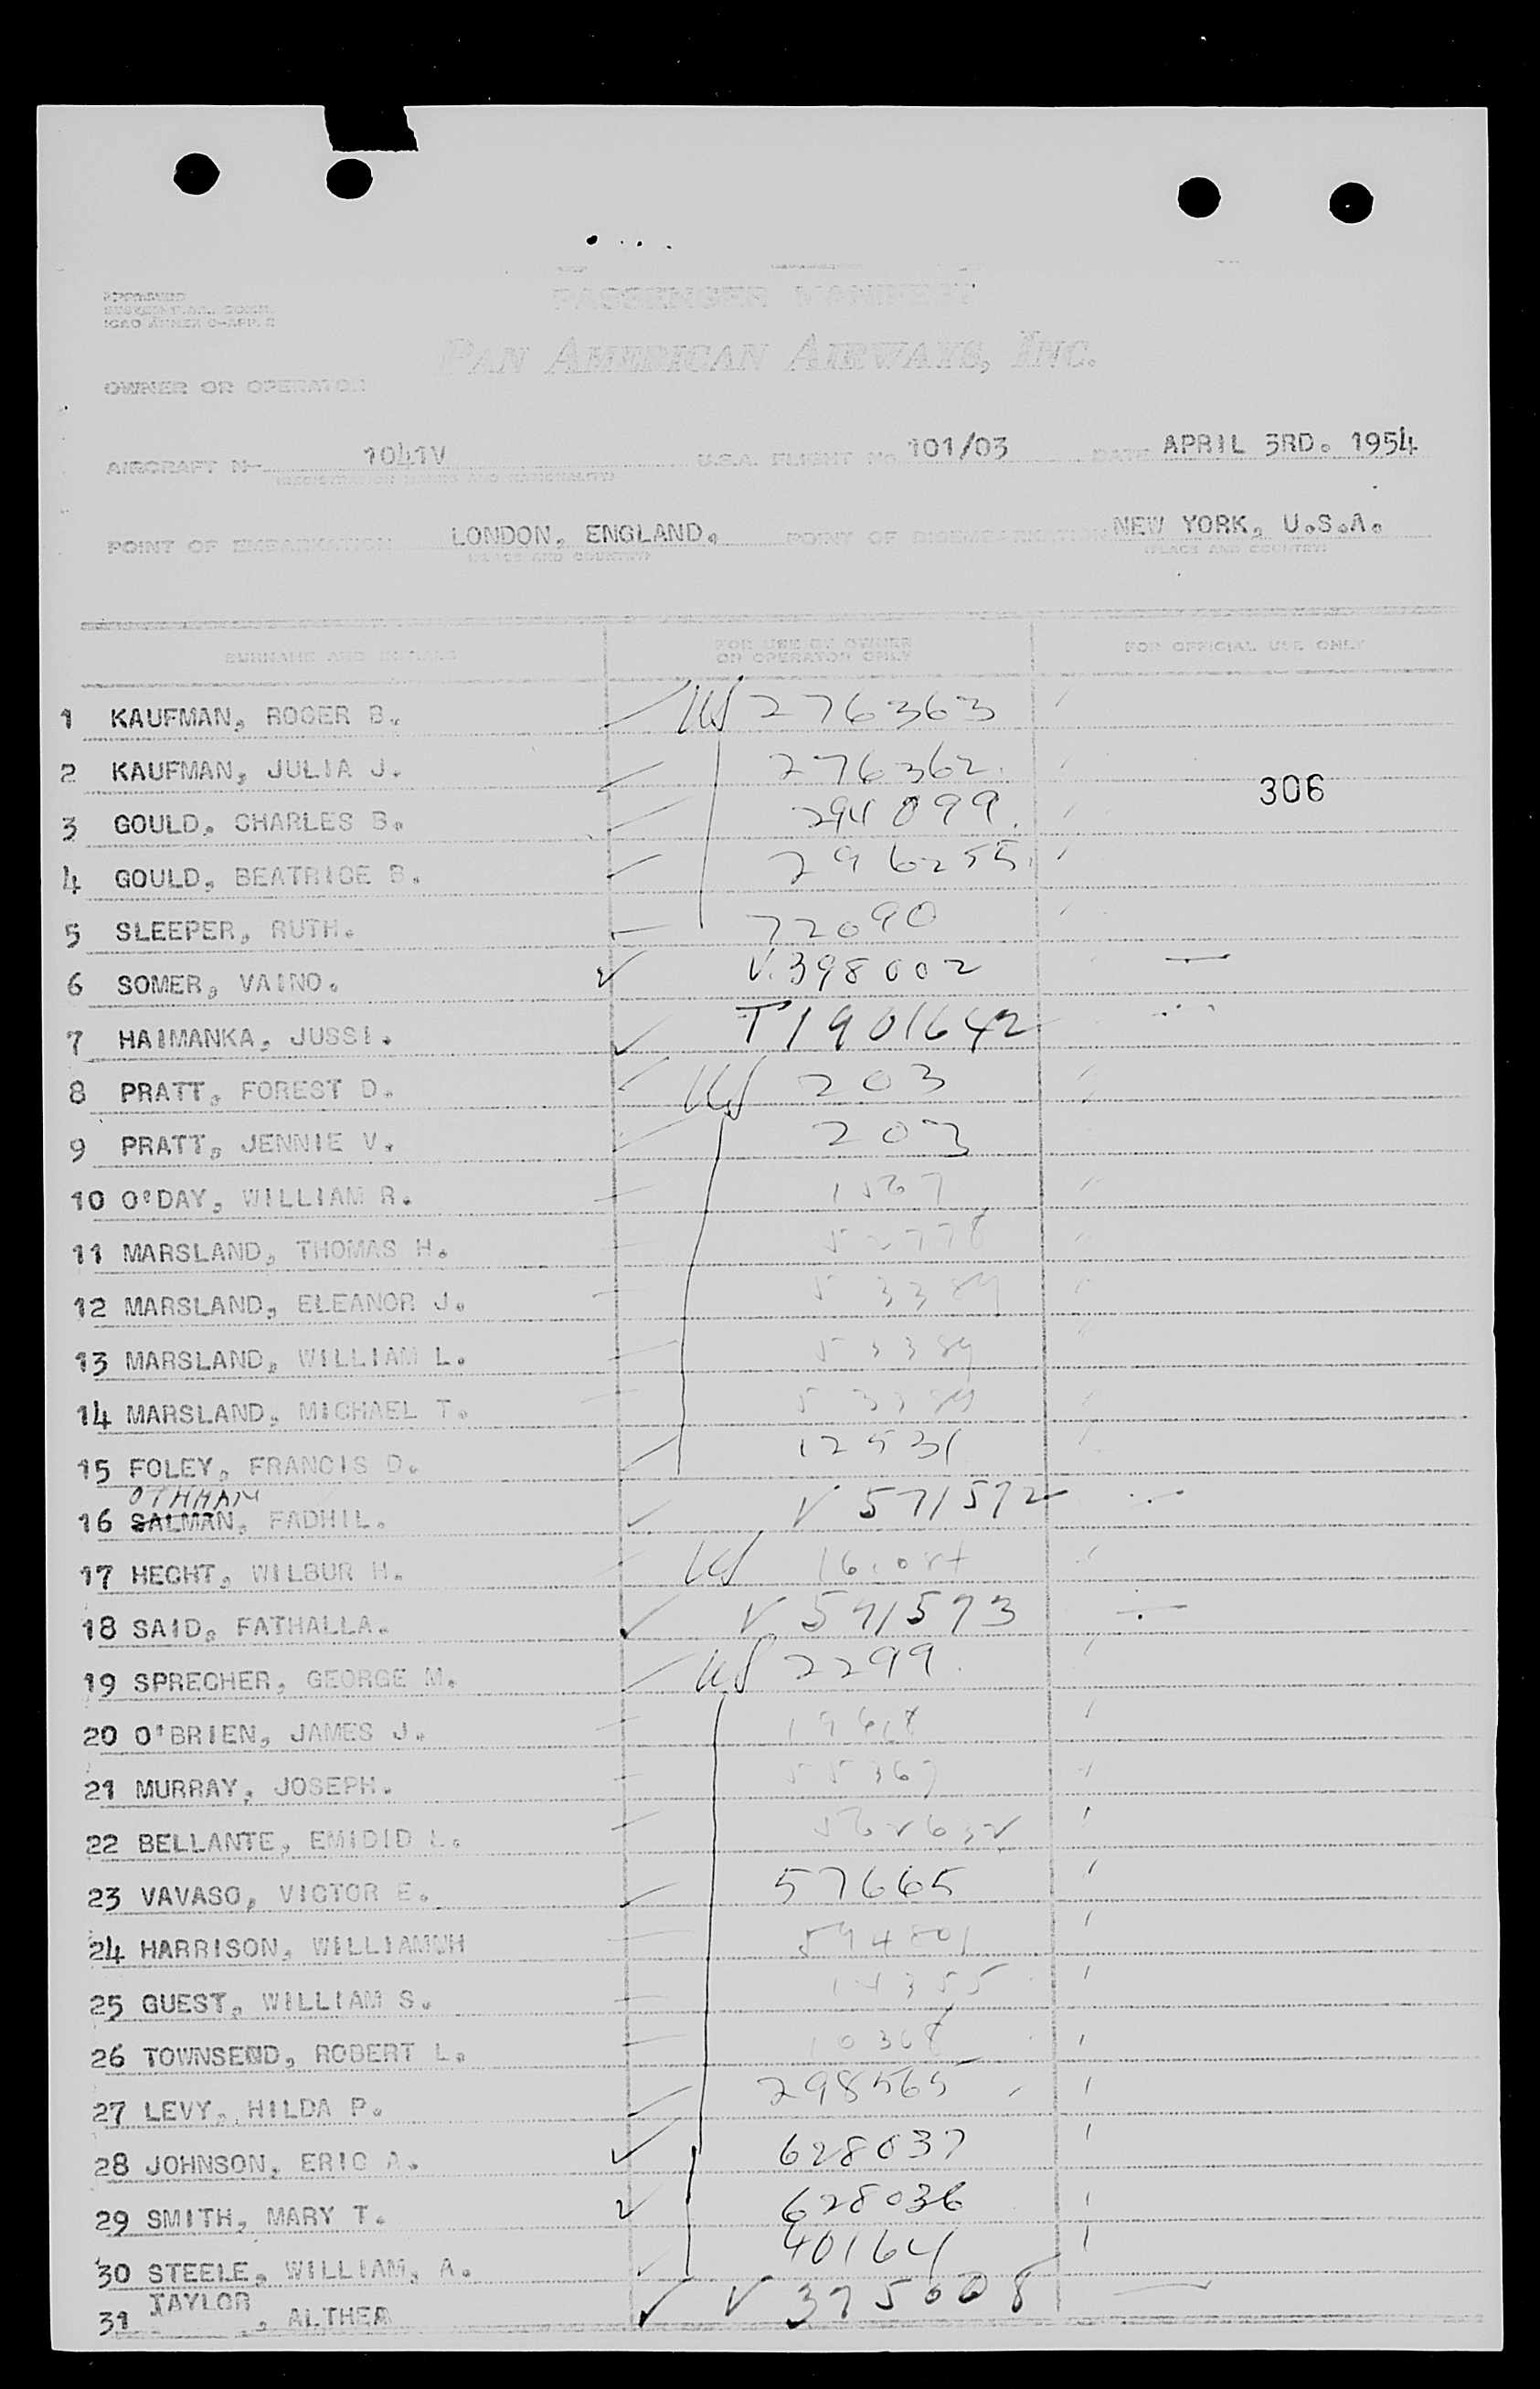 PASSENGER MANIFEST
ICAO ANNEX 9-APP. 2
PAN AMERICAN AIRWAYS, INC.
OWNER OR OPERATOR
AIRCRAFT N— 1041V U.S.A. FLIGHT No. 101/03 DATE APRIL 3RD. 1954
(REGISTRATION MARKS AND NATIONALITY)
POINT OF EMBARKATION LONDON, ENGLAND. POINT OF DISEMBARKATION NEW YORK, U.S.A.
(PLACE AND COUNTRY) (PLACE AND COUNTRY)
SURNAME AND INITIALS FOR USE BY OWNER OR OPERATOR ONLY FOR OFFICIAL USE ONLY
1 KAUFMAN, ROGER B. US 276363
2 KAUFMAN, JULIA J. 276362
306
3 GOULD. CHARLES B. 294099
4 GOULD, BEATRICE B. 296255
5 SLEEPER, RUTH. 72090
6 SOMER, VAINO. V.398002
7 HAIMANKA, JUSSI. T1901642
8 PRATT, FOREST D. US 203
9 PRATT, JENNIE V. 203
10 O'DAY, WILLIAM R. 1567
11 MARSLAND, THOMAS H.
12 MARSLAND, ELEANOR J. 53389
13 MARSLAND, WILLIAM L. 53389
14 MARSLAND, MICHAEL T. 53389
15 FOLEY, FRANCIS D. 12531
OTHMAN
16 SALMAN, FADHIL. V 571572
17 HECHT, WILBUR H. US
18 SAID, FATHALLA. V 571573
19 SPRECHER, GEORGE M. US 2299
20 O'BRIEN, JAMES J.
21 MURRAY, JOSEPH. 55367
22 BELLANTE, EMIDID L.
23 VAVASO, VICTOR E. 57665
24 HARRISON, WILLIAMUH 594801
25 GUEST, WILLIAM S. 14355
26 TOWNSEND, ROBERT L. 10368
27 LEVY, HILDA P. 298565
28 JOHNSON, ERIC A. 628037
29 SMITH, MARY T. 628036
30 STEELE, WILLIAM, A. 40164
31 TAYLOR, ALTHEA V 375608